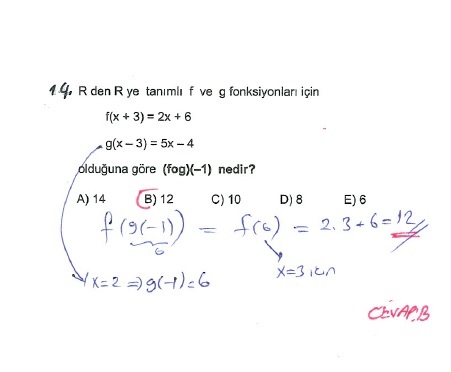 19. R den R ye tanımlı f ve g fonksiyonları için
f(x + 3) = 2x + 6
g(x – 3) = 5x – 4
olduğuna göre (fog)(–1) nedir?
A) 14 B) 12 C) 10 D) 8 E) 6
f(g(-1)) = f(6) = 2.3+6=12
6
x=3 için
x=2 ⇒ g(-1)=6
CEVAP.B